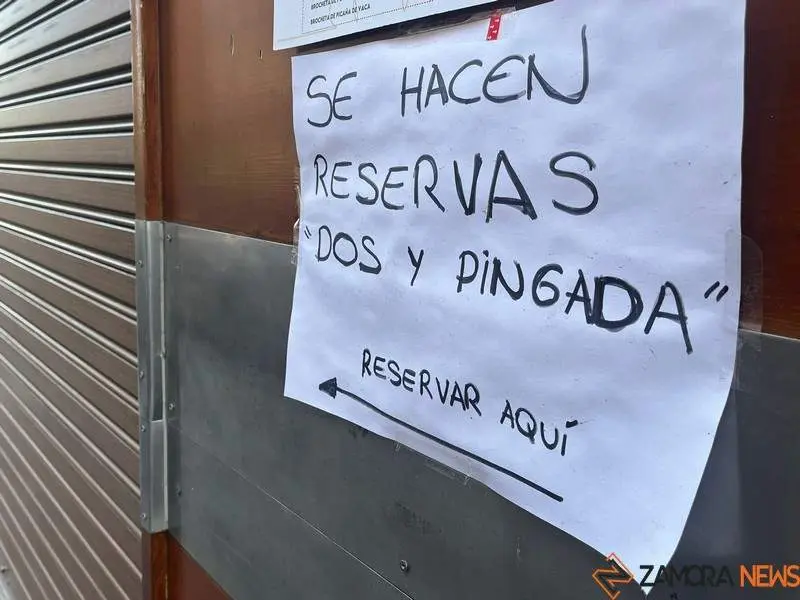 BROCHETA DE PICAÑA DE VACA
SE HACEN
RESERVAS
"DOS Y PINGADA"
RESERVAR AQUÍ
ZAMORA NEWS